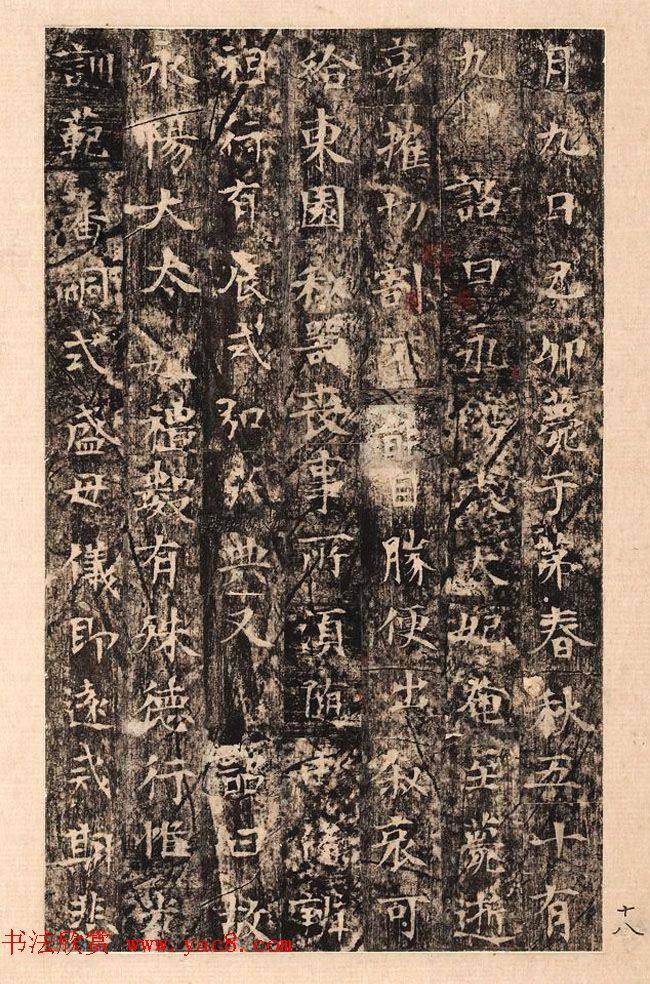 月九日乙卯薨于第春秋五十有
九 詔曰永陽大太妃奄至薨逝
哀摧切割不能自勝便出敘哀可
給東園秘器喪事所須隨由備辦
祖行有辰式弘茂典又 詔曰故
永陽大太妃禮數有殊德行惟光
訓範蕃嗣式盛母儀即遠戒期悲
十八
书法欣赏 www.yac8.com